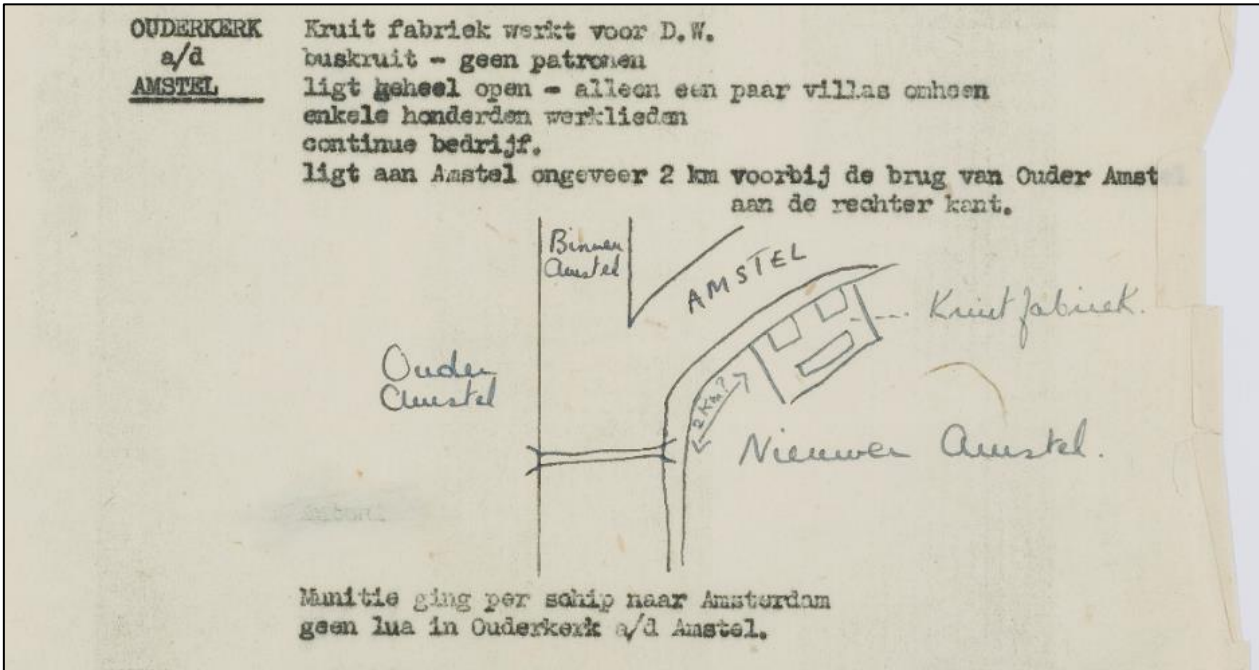 OUDERKERK Kruit fabriek werkt voor D.W.
a/d buskruit - geen patronen
AMSTEL ligt geheel open - alleen een paar villas omheen
enkele honderden werklieden
continue bedrijf.
ligt aan Amstel ongeveer 2 km voorbij de brug van Ouder Amstel
aan de rechter kant.
Binnen
Amstel
AMSTEL
Kruitfabriek.
Ouder
Amstel
2 Km?
Nieuwer Amstel.
Munitie ging per schip naar Amsterdam
geen lua in Ouderkerk a/d Amstel.